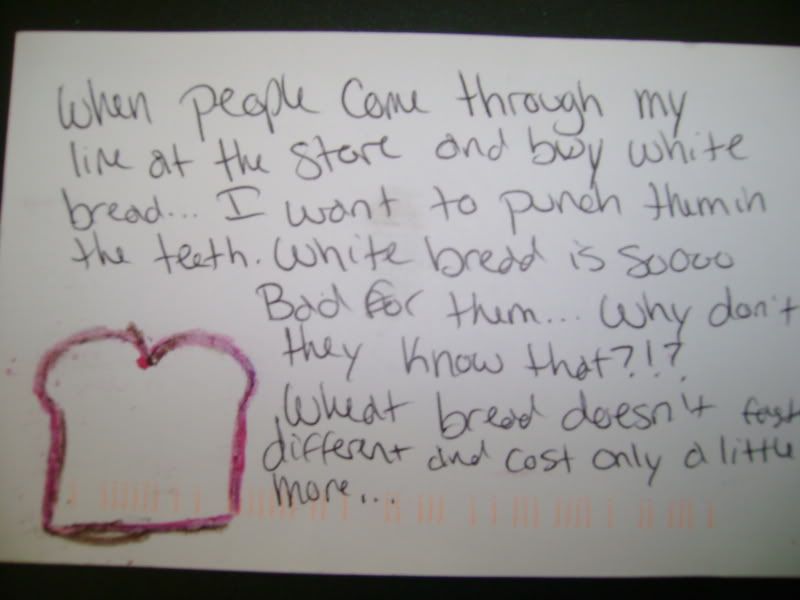 When people come through my
line at the store and buy white
bread... I want to punch them in
the teeth. White bread is soooo
Bad for them... Why don't
they know that?!?
Wheat bread doesn't tast
different and cost only a little
more...